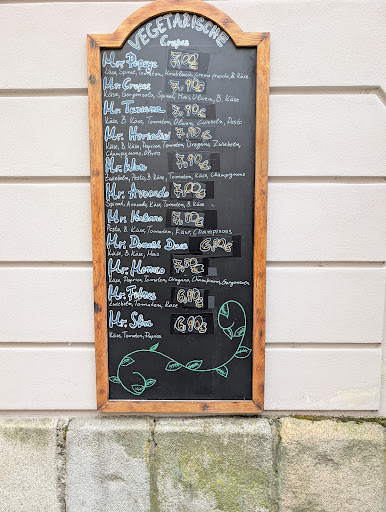 VEGETARISCHE
Crepes
Mr. Popeye 7,90€
Käse, Spinat, Tomaten, Knoblauch, Creme fraiche, B. Käse
Mr. Crepes 7,90€
Käse, Gorgonzola, Spinat, Mais, Oliven, B. Käse
Mr. 7,90€
Käse, B. Käse, Tomaten, Oliven, Zwiebeln, Pesto
Mr. 7,90€
Käse, B. Käse, Paprika, Tomaten, Oregano, Zwiebeln,
Champignons, Oliven
Mr. 7,90€
Zwiebeln, Pesto, B. Käse, Tomaten, Käse, Champignons
Mr. Avocado 7,90€
Spinat, Avocado, Käse, Tomaten, B. Käse
Mr. 7,90€
Pesto, B. Käse, Tomaten, Käse, Champignons
Mr. Donald Duck 6,90€
Käse, B. Käse, Mais
Mr. 7,50€
Käse, Paprika, Tomaten, Oregano, Champignons,
Mr. 6,90€
Zwiebeln, Tomaten, Käse
Mr. 6,90€
Käse, Tomaten, Paprika